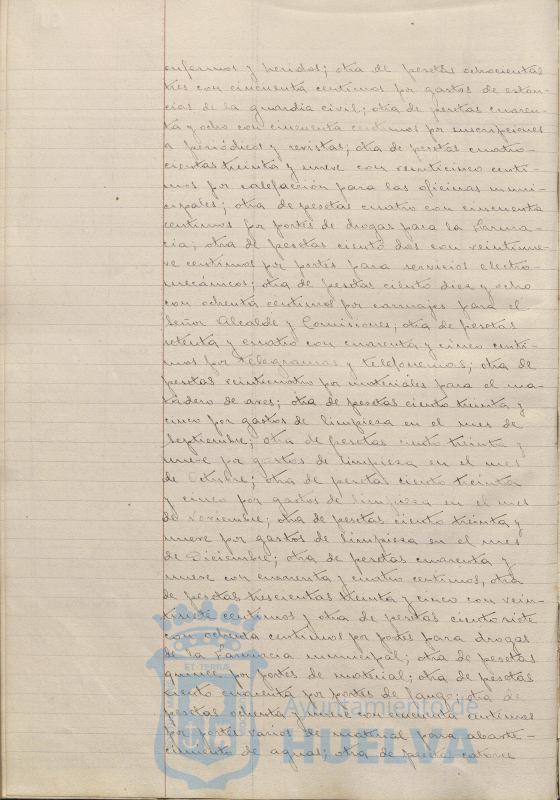 enfermos y heridos; otra de pesetas ochocientas
tres con cincuenta centimos por gastos de estan-
cias de la guardia civil; otra de pesetas cuaren-
ta y ocho con cincuenta centimos por suscripciones
a periódicos y revistas; otra de pesetas cuatro-
cientas treinta y nueve con veinticinco centi-
mos por calefacción para las oficinas muni-
cipales; otra de pesetas cuatro con cincuenta
centimos por portes de drogas para la Farma-
cia; otra de pesetas ciento dos con veintinue-
ve centimos por portes para servicios electro-
mecánicos; otra de pesetas ciento diez y ocho
con ochenta centimos por carruajes para el
Señor Alcalde y Comisiones; otra de pesetas
setenta y cuatro con cuarenta y cinco centi-
mos por telegramas y telefonemas; otra de
pesetas veinticuatro por materiales para el ma-
tadero de aves; otra de pesetas ciento treinta y
cinco por gastos de limpieza en el mes de
Septiembre; otra de pesetas ciento treinta y
nueve por gastos de limpieza en el mes
de Octubre; otra de pesetas ciento treinta
y cinco por gastos de limpieza en el mes
de Noviembre; otra de pesetas ciento treinta y
nueve por gastos de limpieza en el mes
de Diciembre; otra de pesetas cuarenta y
nueve con cuarenta y cuatro centimos, otra
de pesetas trescientas treinta y cinco con vein-
centimos y otra de pesetas ciento siete
con ochenta centimos por portes para drogas
de la Farmacia municipal; otra de pesetas
quince por portes de material; otra de pesetas
ciento cincuenta por portes de fango; otra de
pesetas ochenta y nueve con cincuenta centimos
por portes varios de material para abaste-
cimiento de aguas; otra de pesetas catorce
ET TERRÆ
Ayuntamiento de
HUELVA